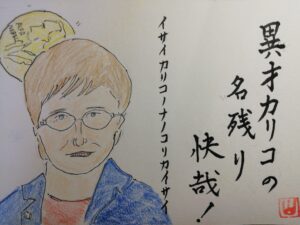 異才カリコの
名残り
快哉!
イサイカリコノナノコリカイサイ